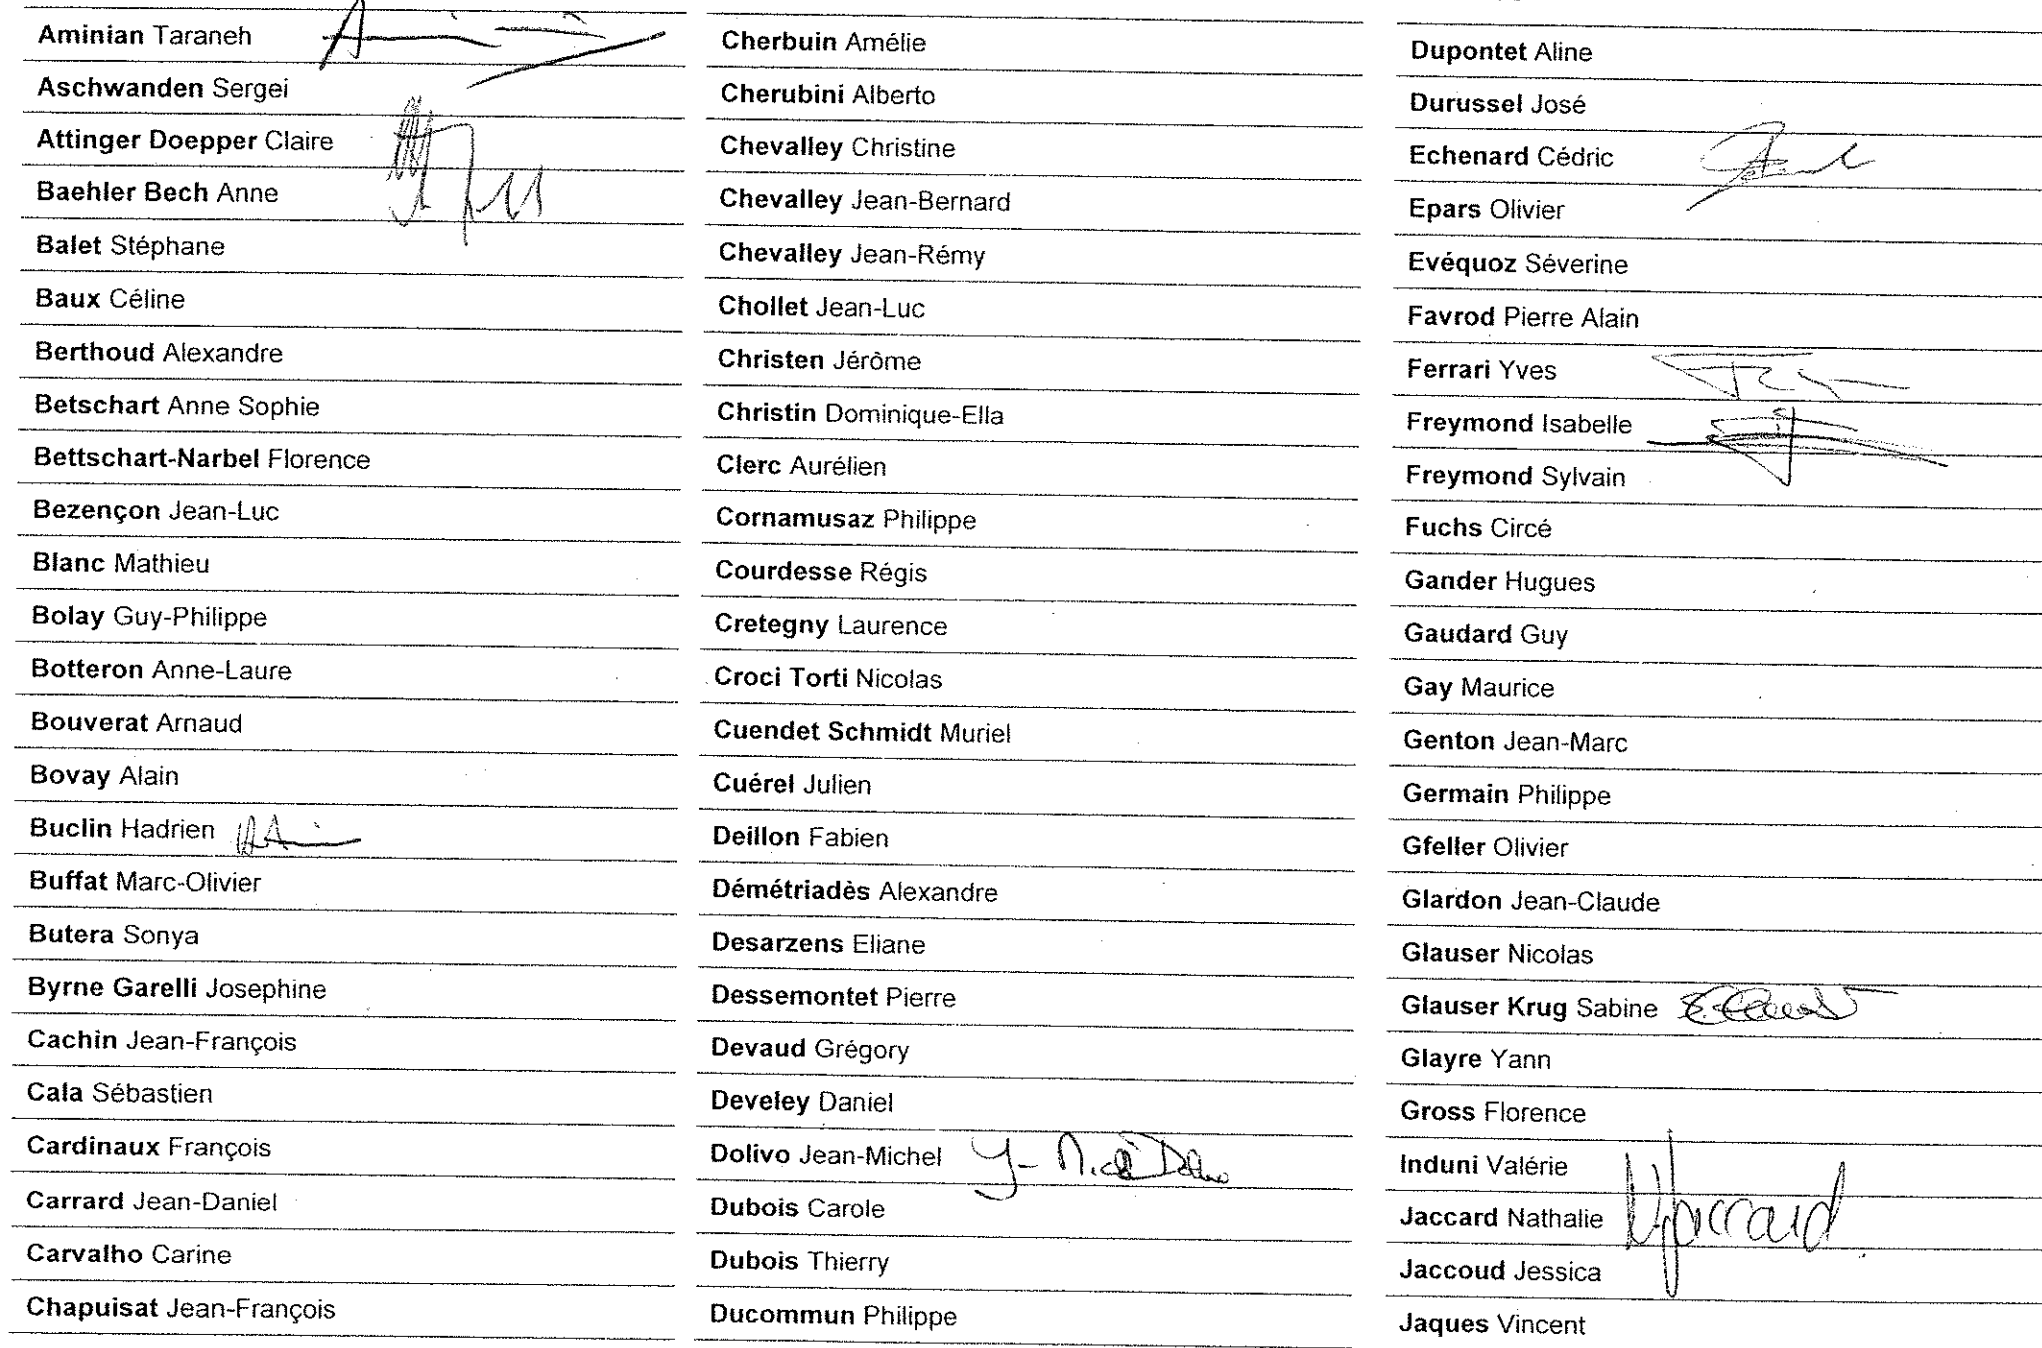 Aminian Taraneh
Aschwanden Sergei
Attinger Doepper Claire
Baehler Bech Anne
Balet Stéphane
Baux Céline
Berthoud Alexandre
Betschart Anne Sophie
Bettschart-Narbel Florence
Bezençon Jean-Luc
Blanc Mathieu
Bolay Guy-Philippe
Botteron Anne-Laure
Bouverat Arnaud
Bovay Alain
Buclin Hadrien
Buffat Marc-Olivier
Butera Sonya
Byrne Garelli Josephine
Cachin Jean-François
Cala Sébastien
Cardinaux François
Carrard Jean-Daniel
Carvalho Carine
Chapuisat Jean-François
Cherbuin Amélie
Cherubini Alberto
Chevalley Christine
Chevalley Jean-Bernard
Chevalley Jean-Rémy
Chollet Jean-Luc
Christen Jérôme
Christin Dominique-Ella
Clerc Aurélien
Cornamusaz Philippe
Courdesse Régis
Cretegny Laurence
Croci Torti Nicolas
Cuendet Schmidt Muriel
Cuérel Julien
Deillon Fabien
Démétriadès Alexandre
Desarzens Eliane
Dessemontet Pierre
Devaud Grégory
Develey Daniel
Dolivo Jean-Michel
Dubois Carole
Dubois Thierry
Ducommun Philippe
Dupontet Aline
Durussel José
Echenard Cédric
Epars Olivier
Evéquoz Séverine
Favrod Pierre Alain
Ferrari Yves
Freymond Isabelle
Freymond Sylvain
Fuchs Circé
Gander Hugues
Gaudard Guy
Gay Maurice
Genton Jean-Marc
Germain Philippe
Gfeller Olivier
Glardon Jean-Claude
Glauser Nicolas
Glauser Krug Sabine
Glayre Yann
Gross Florence
Induni Valérie
Jaccard Nathalie NJaccard
Jaccoud Jessica
Jaques Vincent